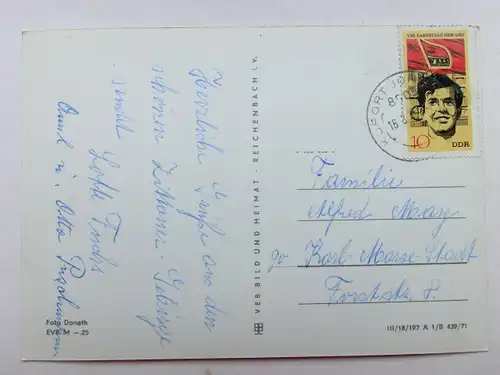 Herzliche Grüße aus dem
schönen Zittauer-Gebirge
sendet
Lotte Fuchs
u. Otto
Foto Donath
EVP M -.25
VEB BILD UND HEIMAT · REICHENBACH i. V.
VIII. PARTEITAG DER SED
10 DDR
KURORT JO
Familie
Alfred Maaz
90 Karl-Marx-Stadt
Forststr. 8.
III/18/197 A 1/B 439/71